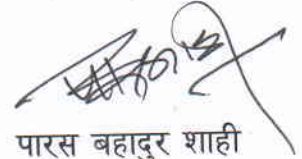 पारस बहादुर शाही